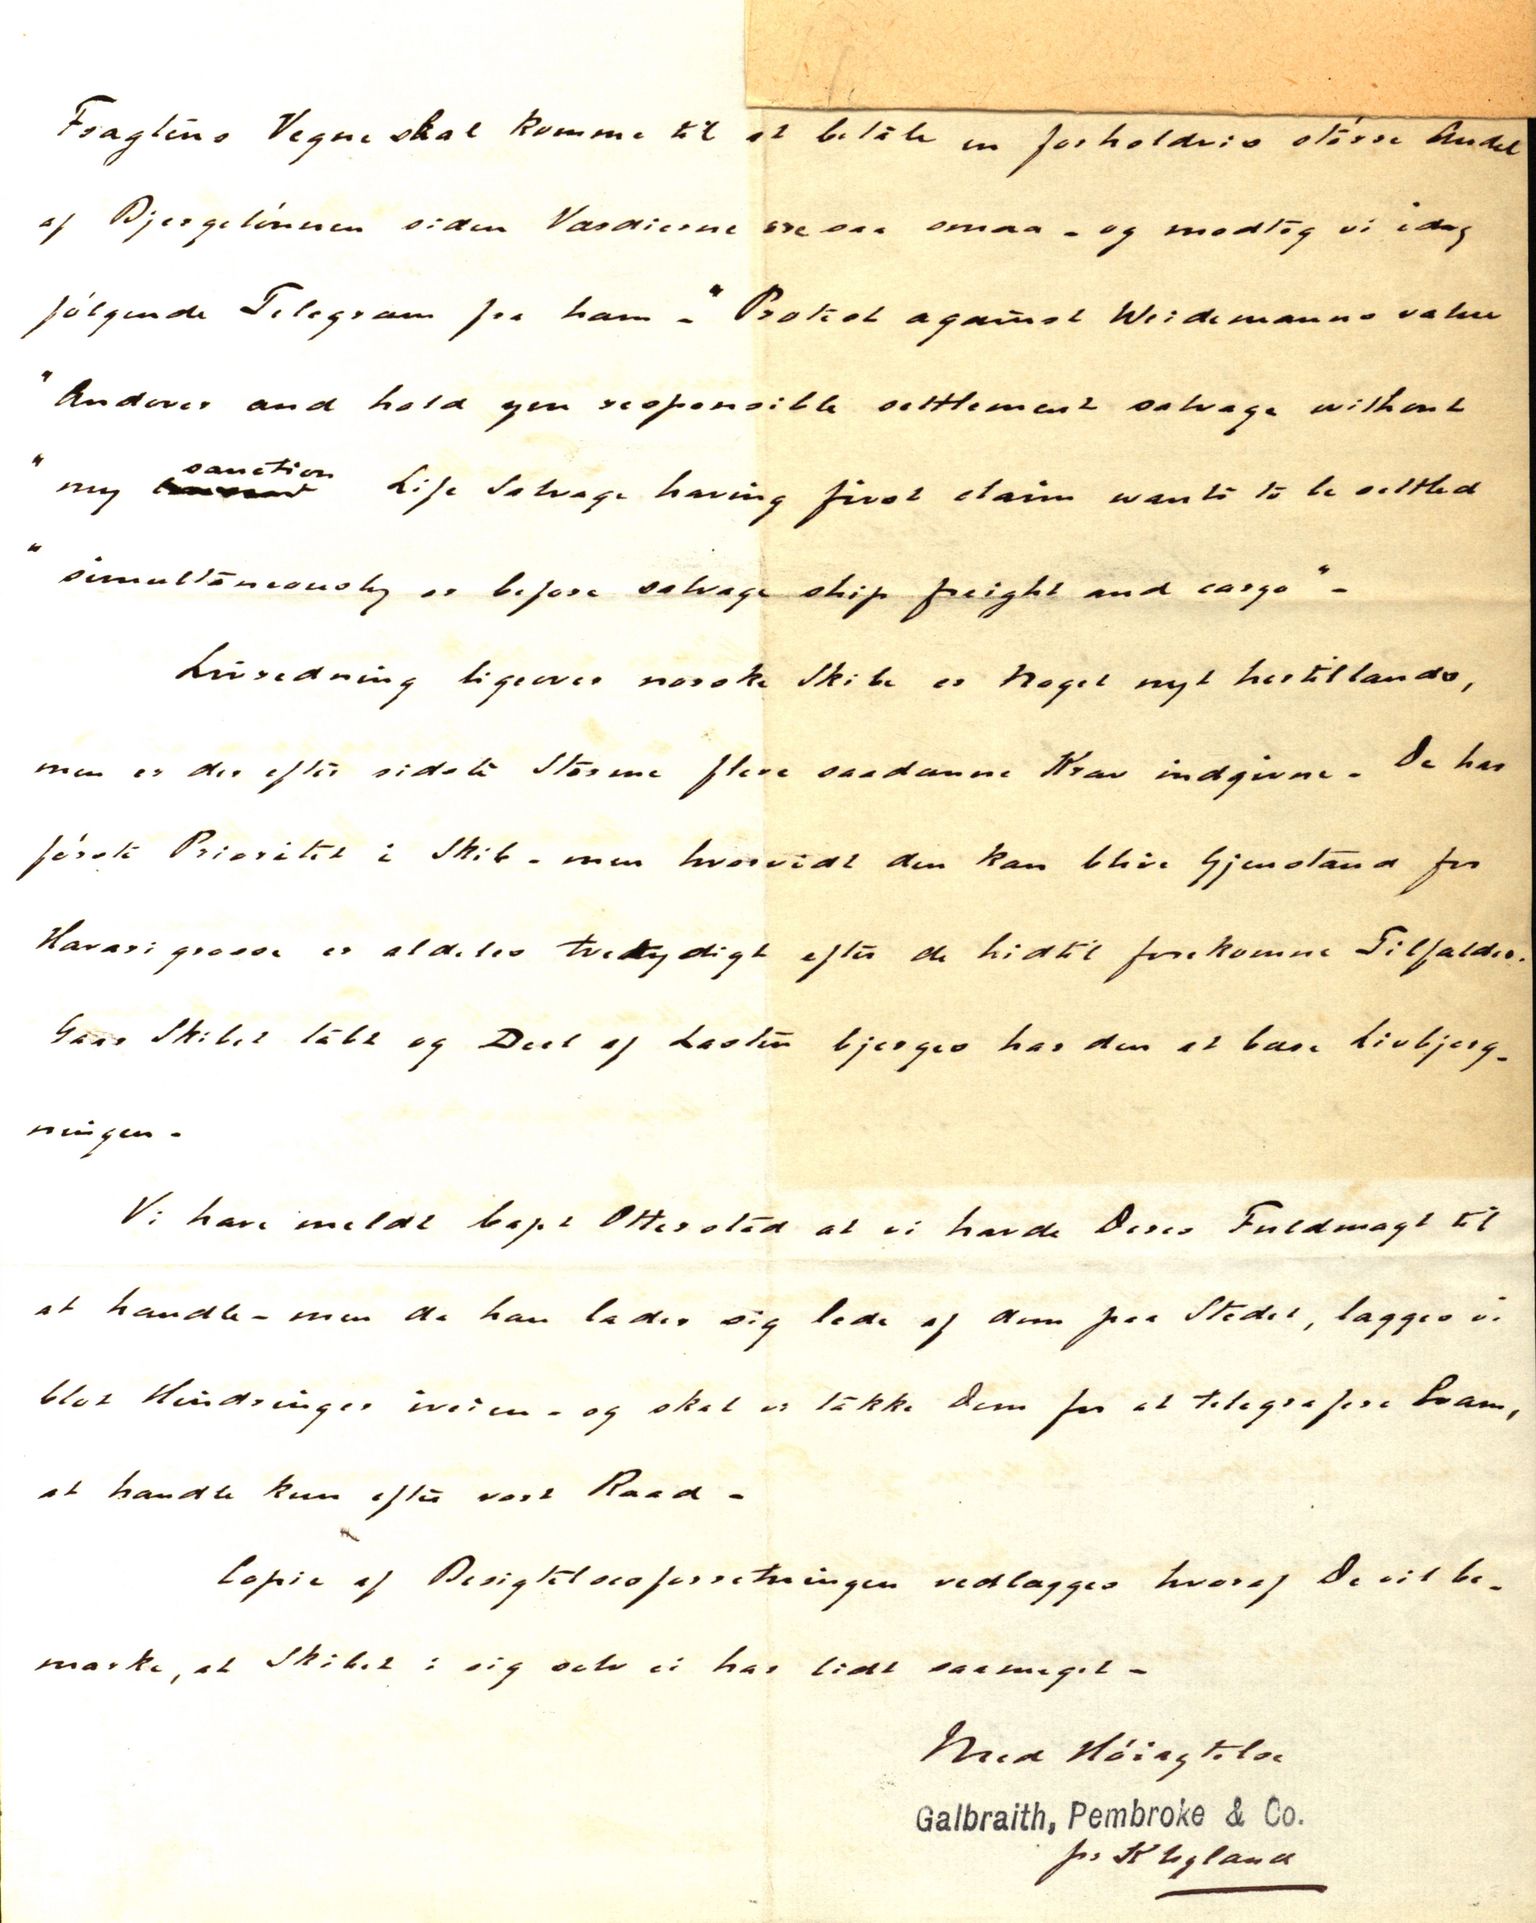 Fragtens Vegne skal komme til at betale en forholdvis större Andel
af Bjergelönnen siden Værdierne ere saa smaa - og modtog vi idag
fölgende Telegram fra ham - " Protest against Weidemanns value
" Andover and hold you responsible settlement salvage without
" my sanction Life Salvage having first claim wants to be settled
" simultaneously or before salvage ship freight and cargo " -
Livredning ligeover norske Skibe er Noget nyt hertillands,
men er der efter sidste Storme flere saadanne Krav indgivne - De har
förste Prioritet i Skib - men hvorvidt den kan blive Gjenstand for
Havari grosse er aldeles tvetydigt efter de hidtil forekomne Tilfælder.
Gaar Skibet tabt og Deel af Lasten bjerges har den at bære Livbjerg-
ningen -
Vi have meldt Capt Ottersted at vi havde Deres Fuldmagt til
at handle - men da han lader sig lede af dem paa Stedet, lægges vi
blot Hindringer iveien - og skal vi takke Dem for at telegrafere
at handle kun efter vort Raad -
Copie af Besigtelsesforretningen vedlægges hvoraf De vil be-
mærke, at Skibet i sig selv ei har lidt saameget -
Med Höiagtelse
Galbraith, Pembroke & Co.
pr